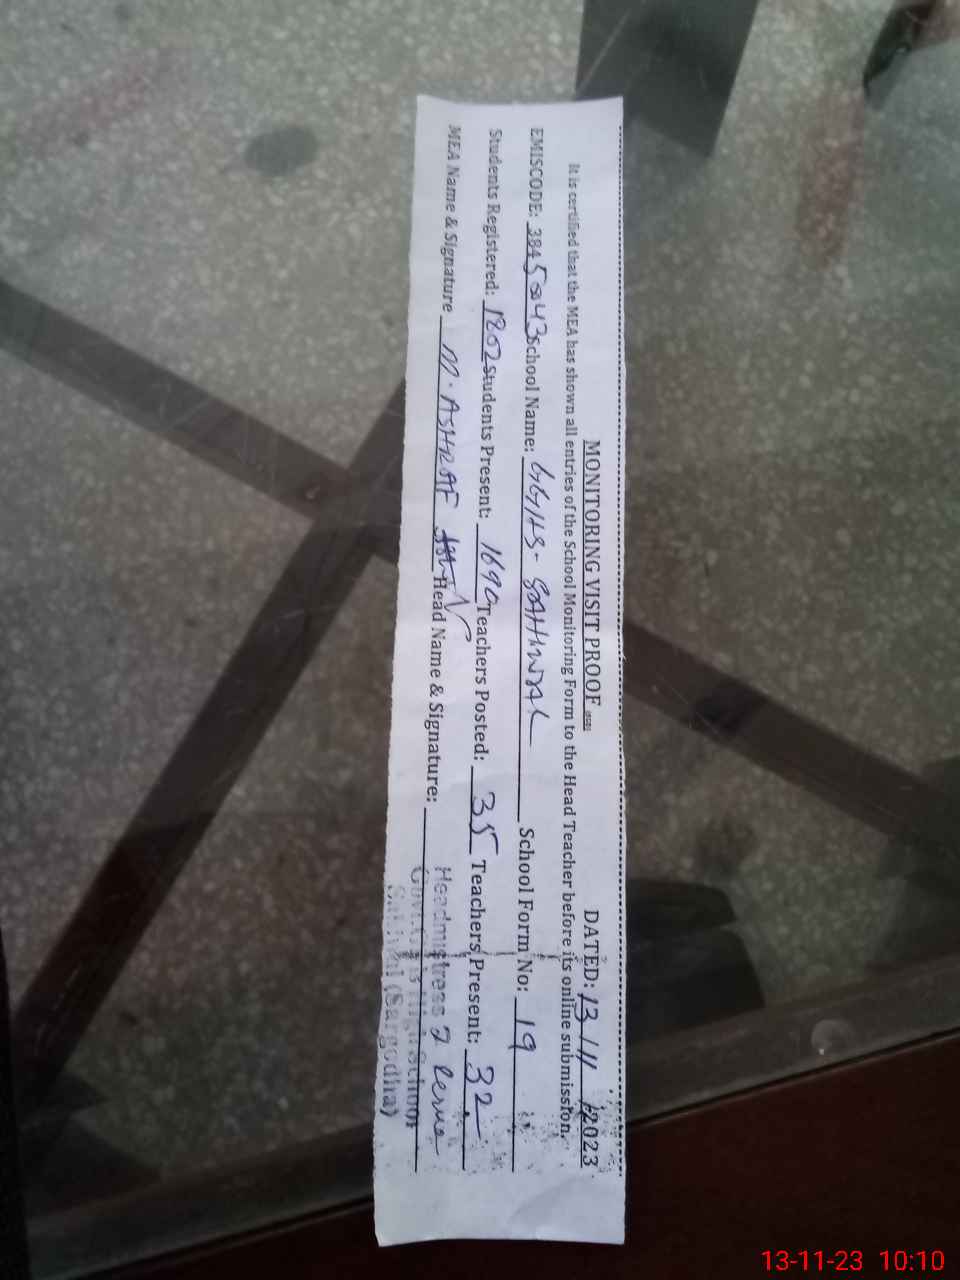 MONITORING VISIT PROOF DATED: 13/11/2023
It is certified that the MEA has shown all entries of the School Monitoring Form to the Head Teacher before its online submission.
EMISCODE: 38450043 School Name: GGHS- SAHIWAL School Form No: 19
Students Registered: 1802 Students Present: 1690 Teachers Posted: 35 Teachers Present: 32
MEA Name & Signature M. ASHRAF Head Name & Signature:
Headmistress
Govt. Girls High School
Sahiwal (Sargodha)
13-11-23 10:10